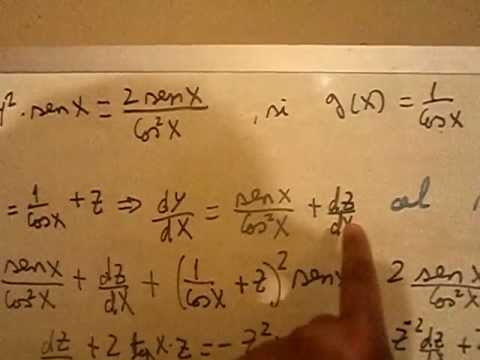 y² · sen x = 2 sen x / cos² x , si g(x) = 1 / cos x
= 1 / cos x + z ⇒ dy / dx = sen x / cos² x + dz / dx al
sen x / cos² x + dz / dx + (1 / cos x + z)² sen x 2 sen x / cos² x
dz + 2 tg x · z = -z² z⁻² dz / dx +